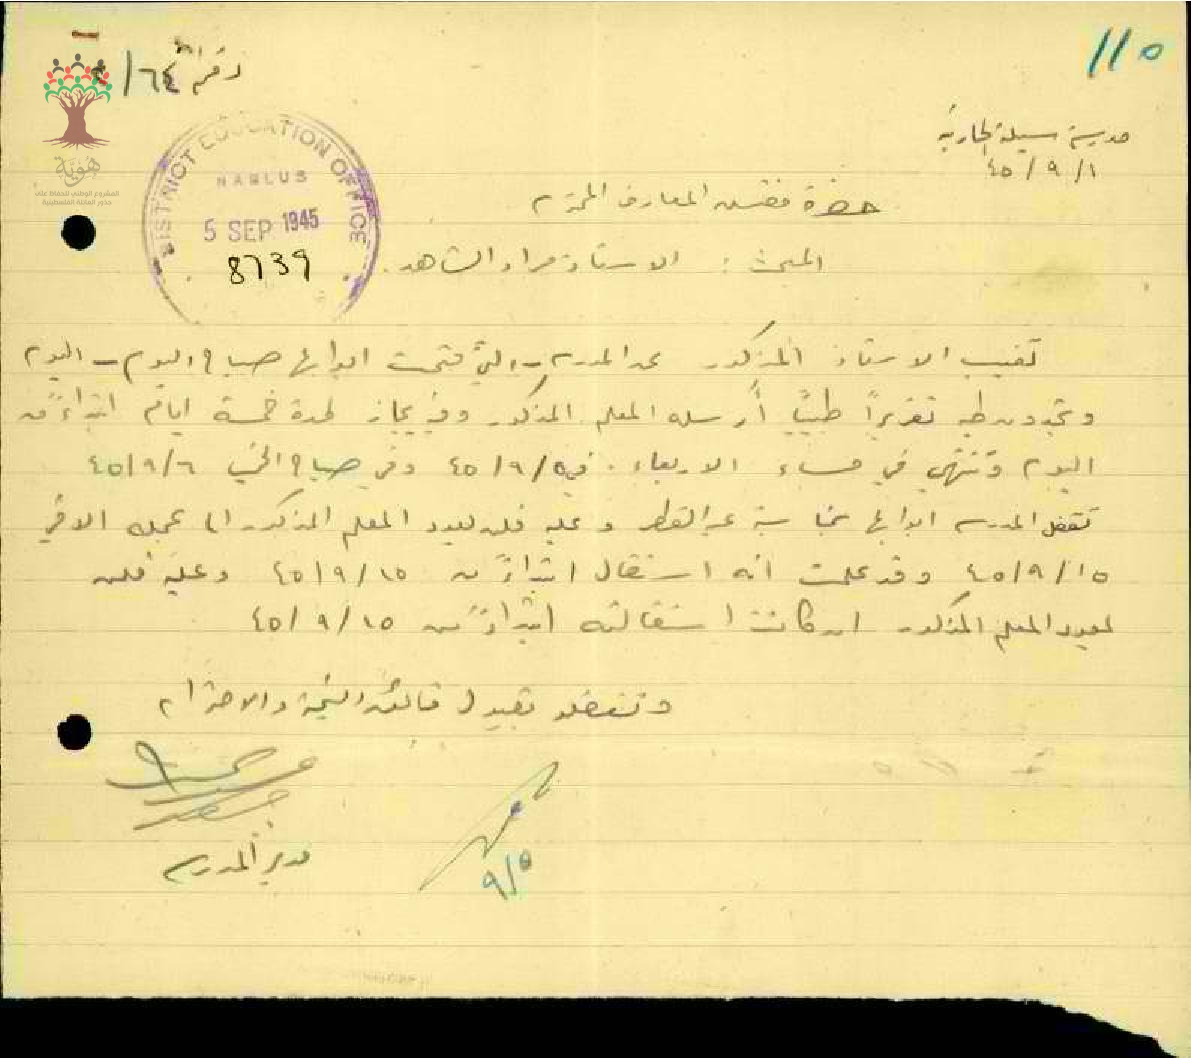 ١١٥
رقم ٦٤/
هوية
المشروع الوطني للحفاظ على
جذور العائلة الفلسطينية
DISTRICT EDUCATION OFFICE
NABLUS
5 SEP 1945
8739
مدرسة سيلة الحارثية
٤٥/٩/١
حضرة مفتش المعارف المحترم
المبحث : الاستاذ مراد الشاهد
تغيب الاستاذ المذكور عن المدرسه - والتي فتحت ابوابها صباح اليوم - اليوم
وتجدون طيه تقريراً طبياً أرسله المعلم المذكور وفيه يجاز لمدة خمسة ايام ابتداءً من
اليوم وتنتهي في مساء الاربعاء في ٤٥/٩/٥ وفي صباح الخميس ٤٥/٩/٦
تقفل المدرسه ابوابها بمناسبة عيد الفطر وعليه فلن يعود المعلم المذكور الى عمله الا في
٤٥/٩/١٥ وقد علمت انه استقال ابتداءً من ٤٥/٩/١٥ وعليه فلن
يعود المعلم المذكور ان كانت استقالته ابتداءً من ٤٥/٩/١٥
وتفضلو بقبول فائق التحية والاحترام
مدير المدرسه
٩/٥